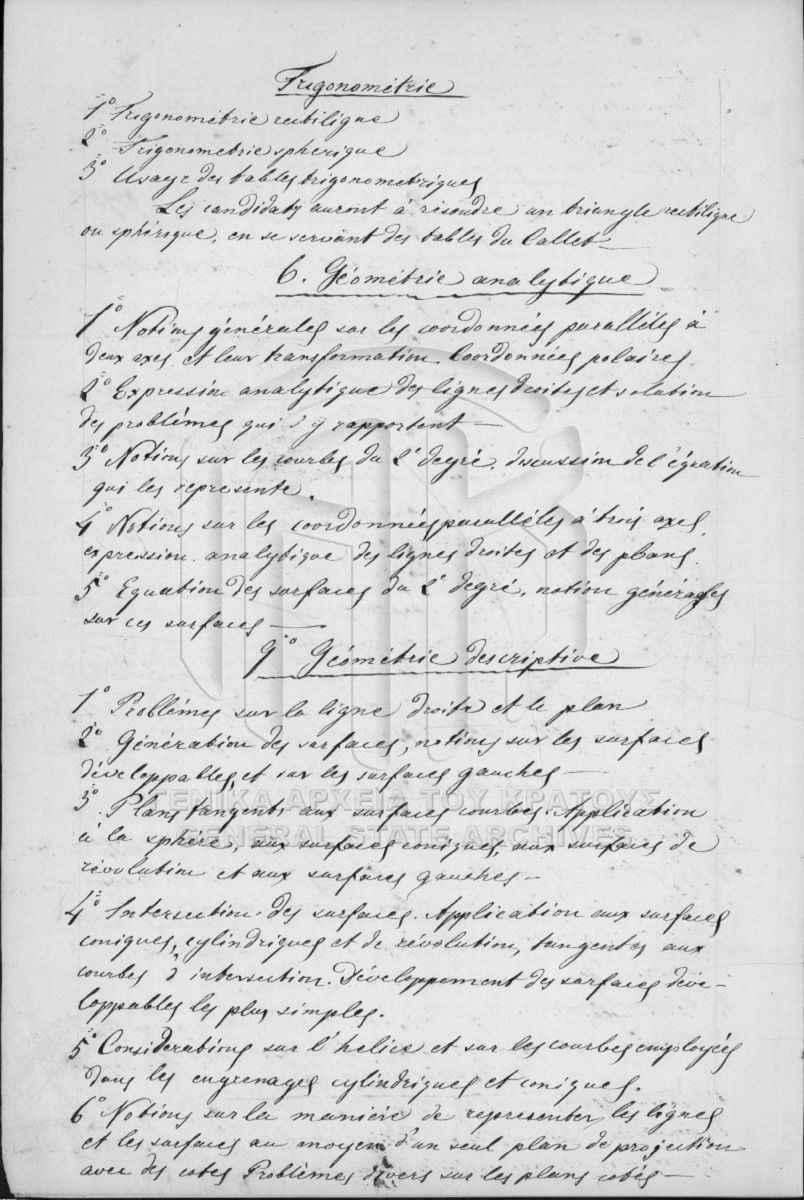 Trigonométrie
1º Trigonométrie rectiligne
2º Trigonometrie spherique
3º Usage des tables trigonometriques
Les candidats auront à résoudre un triangle rectiligne
ou sphérique, en se servant des tables du Callet —
6. Géométrie analytique
1º Notions générales sur les coordonnées parallèles à
deux axes et leur transformation. Coordonnées polaires.
2º Expression analytique des lignes droites et solution
des problèmes qui s'y rapportent —
3º Notions sur les courbes du 2e degré, discussion de l'équation
qui les represente.
4º Notions sur les coordonnées parallèles à trois axes,
expression analytique des lignes droites et des plans.
5º Equation des surfaces du 2e degré, notion générales
sur ces surfaces —
9º Géométrie descriptive
1º Problèmes sur la ligne droite et le plan
2º Génération des surfaces, notions sur les surfaces
développables et sur les surfaces gauches —
ΓΕΝΙΚΑ ΑΡΧΕΙΑ ΤΟΥ ΚΡΑΤΟΥΣ
3º Plans tangents aux surfaces courbes. Application
GENERAL STATE ARCHIVES
à la sphère, aux surfaces coniques, aux surfaces de
révolution et aux surfaces gauches —
4º Intersection des surfaces. Application aux surfaces
coniques, cylindriques et de révolution, tangentes aux
courbes d'intersection. Développement des surfaces deve-
loppables les plus simples.
5º Considerations sur l'helice et sur les courbes employées
dans les engrenages cylindriques et coniques.
6º Notions sur la manière de representer les lignes
et les surfaces au moyen d'un seul plan de projection
avec des cotes Problèmes divers sur les plans cotés —